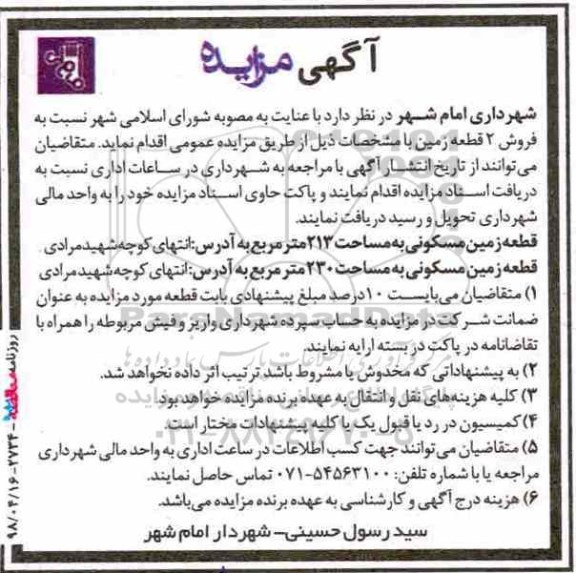 آگهی مزایده
شهرداری امام شهر در نظر دارد با عنایت به مصوبه شورای اسلامی شهر نسبت به
فروش ۲ قطعه زمین با مشخصات ذیل از طریق مزایده عمومی اقدام نماید. متقاضیان
می‌توانند از تاریخ انتشار آگهی با مراجعه به شهرداری در ساعات اداری نسبت به
دریافت اسناد مزایده اقدام نمایند و پاکت حاوی اسناد مزایده خود را به واحد مالی
شهرداری تحویل و رسید دریافت نمایند.
قطعه زمین مسکونی به مساحت ۲۱۳ متر مربع به آدرس: انتهای کوچه شهید مرادی
قطعه زمین مسکونی به مساحت ۲۳۰ متر مربع به آدرس: انتهای کوچه شهید مرادی
۱) متقاضیان می‌بایست ۱۰ درصد مبلغ پیشنهادی بابت قطعه مورد مزایده به عنوان
ضمانت شرکت در مزایده به حساب سپرده شهرداری واریز و فیش مربوطه را همراه با
تقاضانامه در پاکت در بسته ارایه نمایند.
۲) به پیشنهاداتی که مخدوش یا مشروط باشد ترتیب اثر داده نخواهد شد.
۳) کلیه هزینه‌های نقل و انتقال به عهده برنده مزایده خواهد بود.
۴) کمیسیون در رد یا قبول یک یا کلیه پیشنهادات مختار است.
۵) متقاضیان می‌توانند جهت کسب اطلاعات در ساعت اداری به واحد مالی شهرداری
مراجعه یا با شماره تلفن: ۵۴۵۶۳۱۰۰-۰۷۱ تماس حاصل نمایند.
۶) هزینه درج آگهی و کارشناسی به عهده برنده مزایده می‌باشد.
سید رسول حسینی- شهردار امام شهر
روزنامه ۲۷۳۴-۹۸/۰۴/۱۶
ParsNamadData
مرکز فرآوری اطلاعات پارس نماد داده‌ها
۰۲۱-۸۸۳۴۹۶۷۰-۵